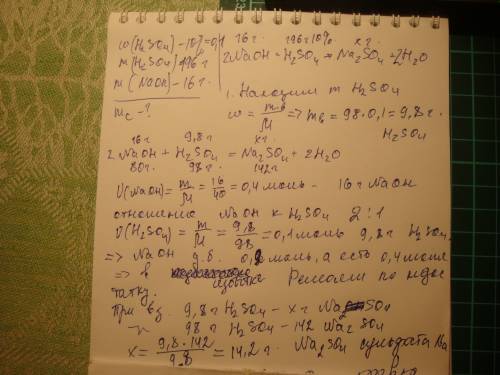 ω(H₂SO₄) - 10% = 0,1
m(H₂SO₄) 196 г
m(NaOH) - 16 г.
mс - ?
16 г. 196 г 10% x г.
2NaOH + H₂SO₄ = Na₂SO₄ + 2H₂O
1. Находим m H₂SO₄
ω = => mв = 98·0,1 = 9,8 г.
H₂SO₄
16 г 9,8 г xг
2NaOH + H₂SO₄ = Na₂SO₄ + 2H₂O
80г. 98 г. 142г
ν(NaOH) = m/M = 16/40 = 0,4 моль - 16 г NaOH
отношение NaOH к H₂SO₄ 2:1
ν(H₂SO₄) = m/M = 9,8/98 = 0,1 моль 9,8 г H₂SO₄
=> NaOH д.б. 0,2 моль, а есть 0,4 моль
=> в избытке Решаем по недос
татку.
При вз. 9,8 г H₂SO₄ - x г Na₂SO₄
98 г H₂SO₄ - 142 Na₂SO₄
x = 9,8·142/9.8 = 14,2 г. Na₂SO₄ сульфата Na